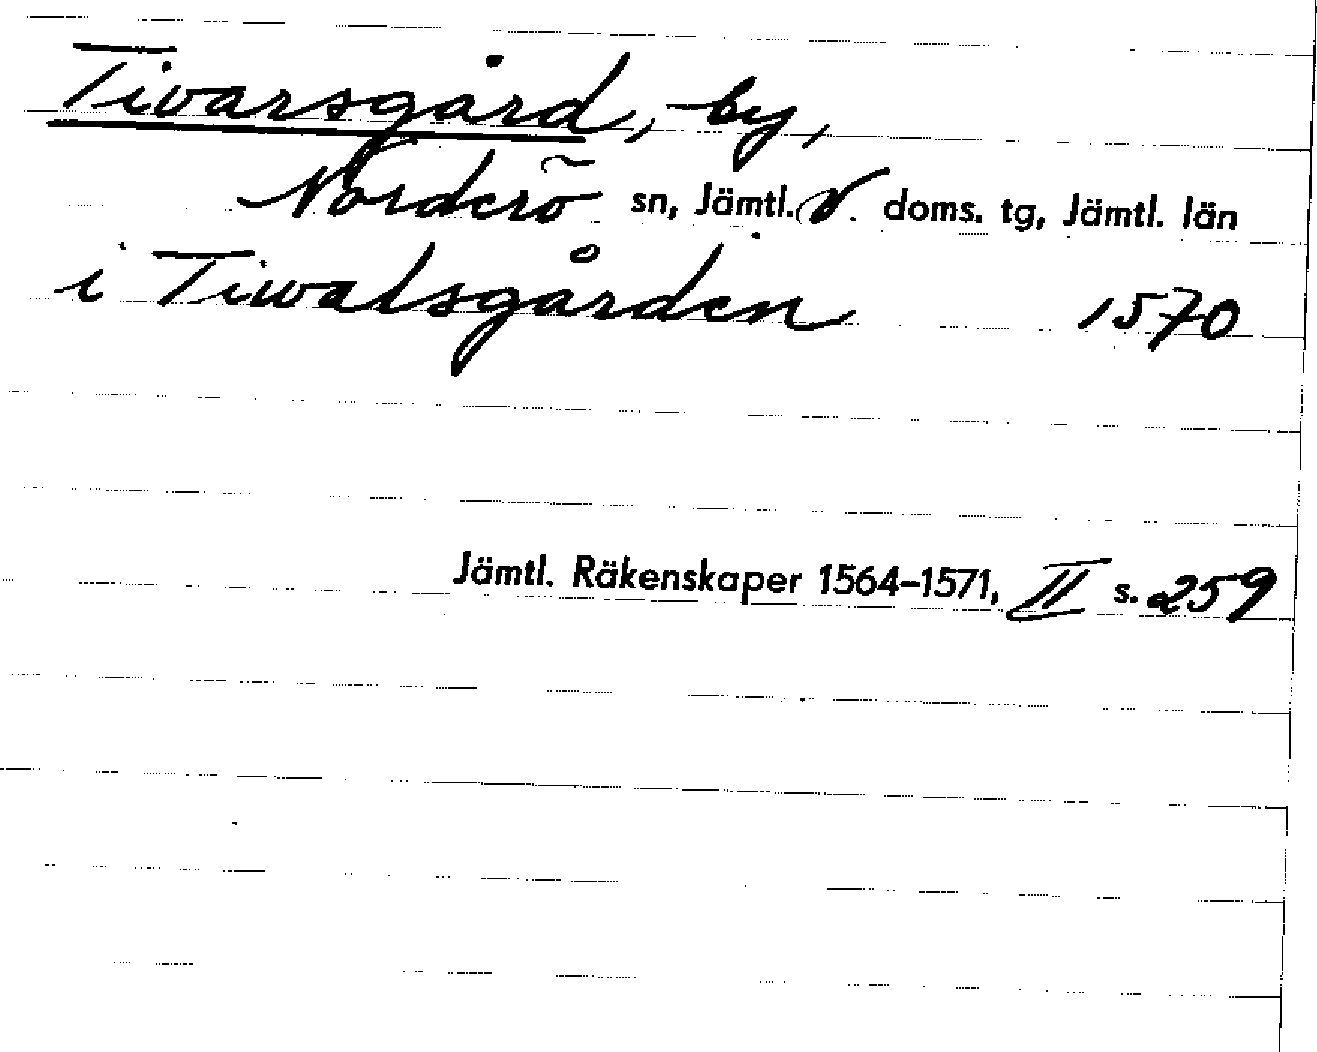 Tivarsgård, by,
Norderö sn, Jämtl. V. doms. tg, Jämtl. län
i Tiwalsgården 1570
Jämtl. Räkenskaper 1564–1571, II s. 259